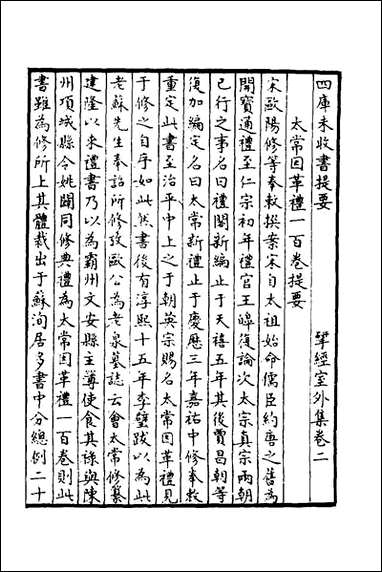 四庫未收書提要　　　　　揅經室外集卷二
太常因革禮一百卷提要
宋歐陽修等奉敕撰案宋自太祖始命儒臣約唐之舊為
開寶通禮至仁宗初年禮官王皥復論次太宗真宗兩朝
已行之事名曰禮閣新編止于天禧五年其後賈昌朝等
復加編定名曰太常新禮止于慶歷三年嘉祐中修奉敕
重定此書至治平中上之于朝英宗賜名太常因革禮見
于修之自序如此然書後有淳熙十五年李璧跋以為此
老蘇先生奉詔所修攷歐公為老泉墓誌云會太常修纂
建隆以來禮書乃以為霸州文安縣主簿使食其祿與陳
州項城縣令姚闢同修典禮為太常因革禮一百卷則此
書雖為修所上其體裁出于蘇洵居多書中分總例二十